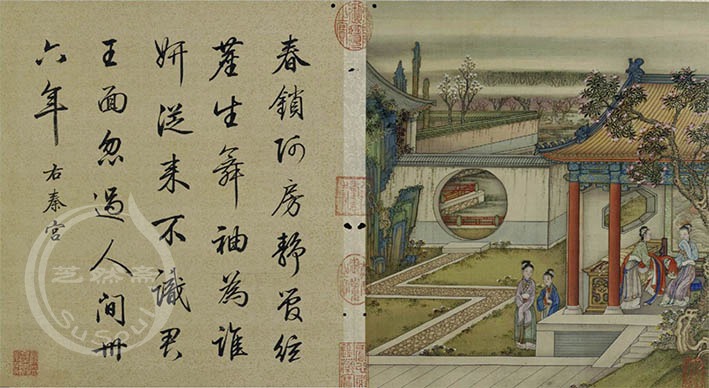 春鎖阿房靜管絃
塵生舞袖為誰
妍從來不識君
王面忽過人間卅
六年 右秦宮
芝然斋
SuSoul